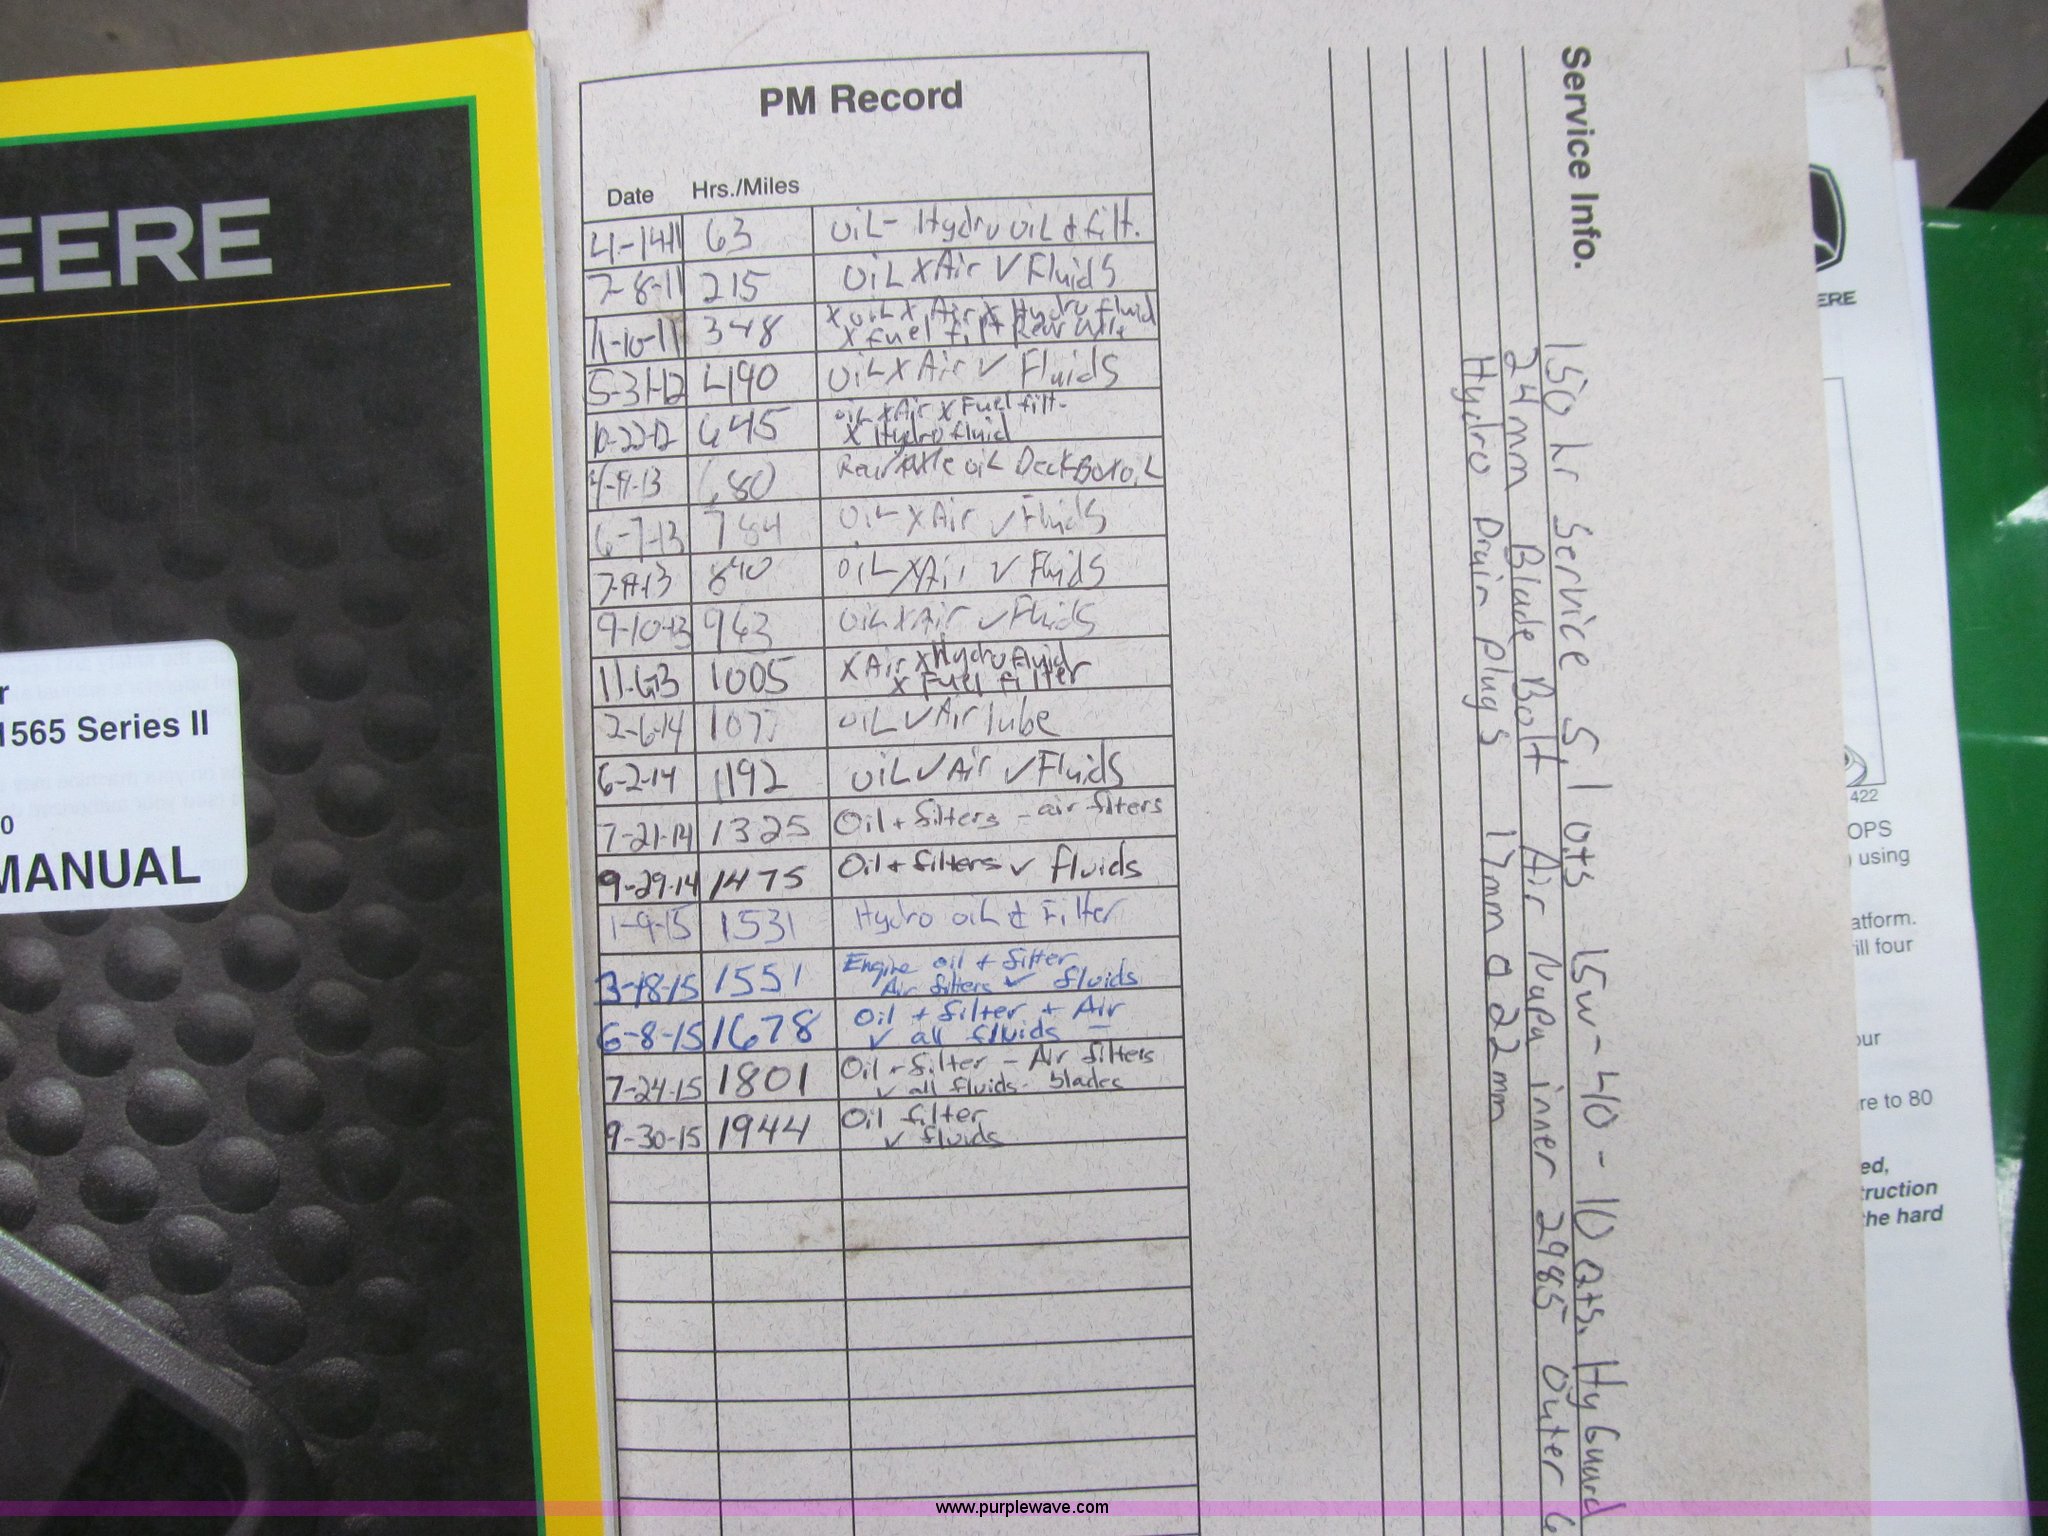 EERE
r
1565 Series II
0
MANUAL
PM Record
Date Hrs./Miles
4-14-11 63 OiL- Hydro oiL & filt.
7-8-11 215 OiL X Air ✓ Fluids
11-10-11 348 X OiL X Air X Hydro fluid
X fuel filt Rear axle
5-31-12 490 OiL X Air ✓ Fluids
10-22-12 645 OiL X Air X Fuel filt-
X Hydro fluid
680 Rear Axle oiL Deck Box oiL
6-7-13 784 OiL X Air ✓ Fluids
840 OiL X Air ✓ Fluids
9-10-13 963 OiL X Air ✓ Fluids
11-6-13 1005 X Air X Hydro fluid
X Fuel filter
2-6-14 1077 OiL ✓ Air lube
6-2-14 1192 OiL ✓ Air ✓ Fluids
7-21-14 1325 Oil + filters - air filters
9-29-14 1475 Oil + filters ✓ fluids
1-9-15 1531 Hydro oiL & Filter
3-18-15 1551 Engine oil + filter
Air filters ✓ fluids
6-8-15 1678 Oil + filter + Air
✓ all fluids -
7-24-15 1801 Oil - filter - Air filters
✓ all fluids - blades
9-30-15 1944 Oil filter
✓ fluids
Service Info.
150 hr Service 5.1 qts 15w-40 - 10 Qts. Hy Guard
24mm Blade Bolt Air Napa inner 2985 Outer 6
Hydro Drain plugs 17mm & 22mm
ERE
422
OPS
using
atform.
ill four
our
re to 80
ed,
truction
the hard
www.purplewave.com